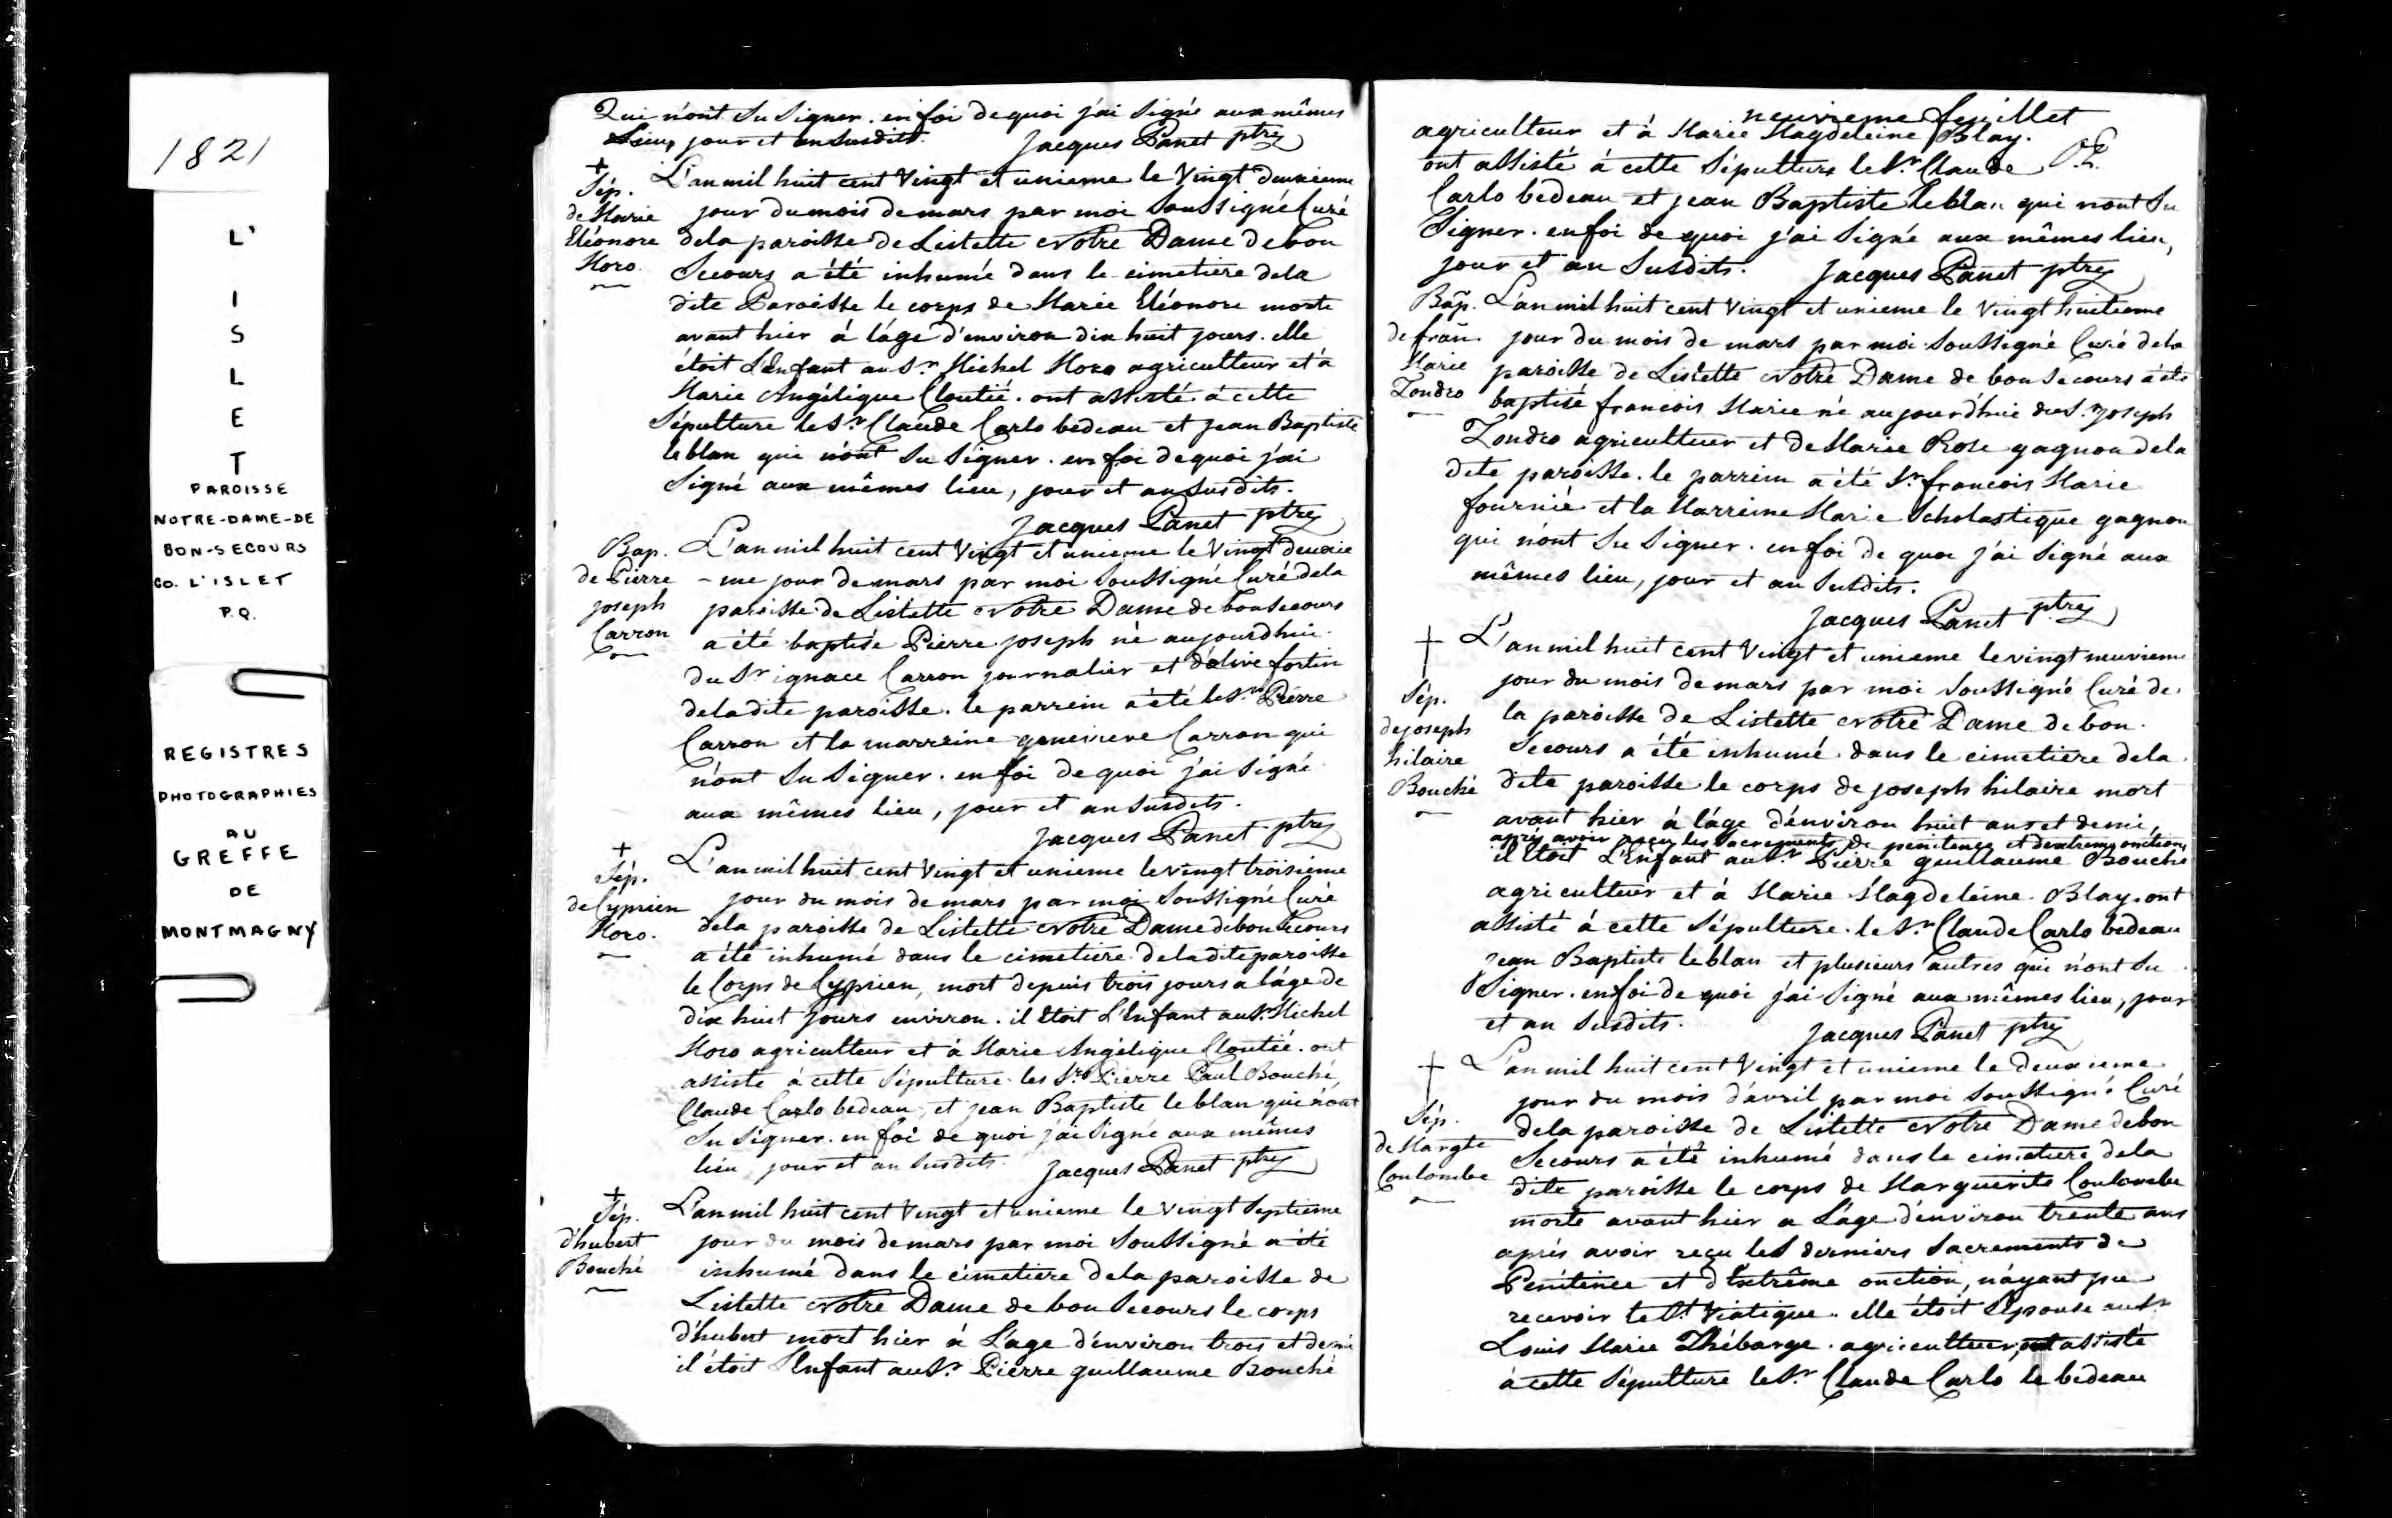 1821
L'
I
S
L
E
T
PAROISSE
NOTRE-DAME-DE
BON-SECOURS
CO. L'ISLET
P.Q.
REGISTRES
PHOTOGRAPHIES
AU
GREFFE
DE
MONTMAGNY
Qui n'ont Su Signer. en foi de quoi j'ai Signé aux mêmes
Lieu, jour et an Susdits. Jacques Panet ptre
+
Sép.
de Marie
Eléonore
Moro.
L'an mil huit cent Vingt et unieme le Vingt deuxieme
jour du mois de mars par moi Soussigné Curé
de la paroisse de Lislette Notre Dame de bon
Secours a été inhumé dans le cimetiere de la
dite Paroisse le corps de Marie Eléonore morte
avant hier à l'âge d'environ dix huit jours. elle
étoit L'Enfant au Sr. Michel Moro agriculteur et à
Marie Angélique Cloutié. ont assisté à cette
Sépulture le Sr. Claude Carlo bedeau et jean Baptiste
leblan qui n'ont Su Signer. en foi de quoi j'ai
Signé aux mêmes lieu, jour et an Susdits.
Jacques Panet ptre
Bap.
de Pierre
joseph
Carron
L'an mil huit cent Vingt et unieme le Vingt deuxie
-me jour de mars par moi Soussigné Curé de la
paroisse de Lislette Notre Dame de bon Secours
a été baptisé Pierre joseph né aujourdhui
du Sr ignace Carron journalier et d'olive fortin
de la dite paroisse. le parrein a été le Sr. Pierre
Carron et la marreine genevieve Carron qui
n'ont Su Signer. en foi de quoi j'ai Signé
aux mêmes lieu, jour et an Susdits.
Jacques Panet ptre
+
Sép.
de Cyprien
Moro.
L'an mil huit cent Vingt et unieme le vingt troisieme
jour du mois de mars par moi Soussigné Curé
de la paroisse de Lislette Notre Dame de bon Secours
a été inhumé dans le cimetiere de la dite paroisse
le Corps de Cyprien, mort depuis trois jours a l'âge de
dix huit jours environ. il étoit L'Enfant au Sr. Michel
Moro agriculteur et à Marie Angélique Cloutié. ont
assisté à cette Sépulture les Srs Pierre Paul Bouché
Claude Carlo bedeau et jean Baptiste leblan qui n'ont
Su Signer. en foi de quoi j'ai Signé aux mêmes
lieu, jour et an Susdits. Jacques Panet ptre
+
Sép.
d'hubert
Bouché
L'an mil huit cent Vingt et unieme le vingt Septieme
jour du mois de mars par moi Soussigné a été
inhumé dans le cimetiere de la paroisse de
Lislette Notre Dame de bon Secours le corps
d'hubert mort hier à L'age d'environ trois et demi
il étoit l'Enfant au Sr. Pierre guillaume Bouché
neuvieme feuillet
agriculteur et à Marie Magdeleine Blay.
ont assisté à cette Sépulture le Sr. Claude
Carlo bedeau et jean Baptiste leblan qui n'ont Su
Signer. en foi de quoi j'ai Signé aux mêmes lieu,
jour et an Susdits. Jacques Panet ptre
Bap.
de fran.
Marie
Zondro
L'an mil huit cent Vingt et unieme le Vingt huitieme
jour du mois de mars par moi Soussigné Curé de la
paroisse de Lislette Notre Dame de bon Secours a été
baptisé francois Marie né aujourdhui du Sr. joseph
Zondro agriculteur et de Marie Rose gagnon de la
dite paroisse. le parrein a été Sr. francois Marie
fournié et la Marreine Marie Scholastique gagnon
qui n'ont Su Signer. en foi de quoi j'ai Signé aux
mêmes lieu, jour et an Susdits.
Jacques Panet ptre
+
Sép.
de joseph
hilaire
Bouché
L'an mil huit cent Vingt et unieme le vingt neuvieme
jour du mois de mars par moi Soussigné Curé de
la paroisse de Lislette Notre Dame de bon
Secours a été inhumé dans le cimetiere de la
dite paroisse le corps de joseph hilaire mort
avant hier à l'âge d'environ huit ans et demi,
après avoir reçu les Sacrements de penitence et d'extreme onction
il étoit L'Enfant au Sr. Pierre guillaume Bouché
agriculteur et à Marie Magdeleine Blay. ont
assisté à cette Sépulture le Sr. Claude Carlo bedeau
jean Baptiste leblan et plusieurs autres qui n'ont Su
Signer. en foi de quoi j'ai Signé aux mêmes lieu, jour
et an Susdits. Jacques Panet ptre
+
Sép.
de Margte
Coulombe
L'an mil huit cent Vingt et unieme le deuxieme
jour du mois d'avril par moi soussigné Curé
de la paroisse de Lislette Notre Dame de bon
Secours a été inhumé dans le cimetiere de la
dite paroisse le corps de Marguerite Coulombe
morte avant hier a L'age d'environ trente ans
après avoir reçu les derniers Sacrements de
Penitence et d'Extrême onction, n'ayant pu
recevoir le St. Viatique. elle étoit l'Epouse au Sr
Louis Marie Thébarge. agriculteur, ont assisté
à cette Sépulture le Sr. Claude Carlo le bedeau